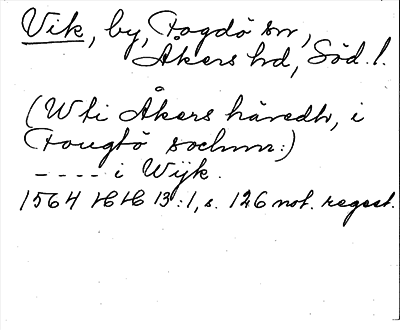 Vik, by, Fogdö sn,
Åkers hd, Söd. l.
(W ti Åkers häredh, i
Fougtö sochnn:)
---- i Wijk.
1564 HH 13:1, s. 126 not. regest.